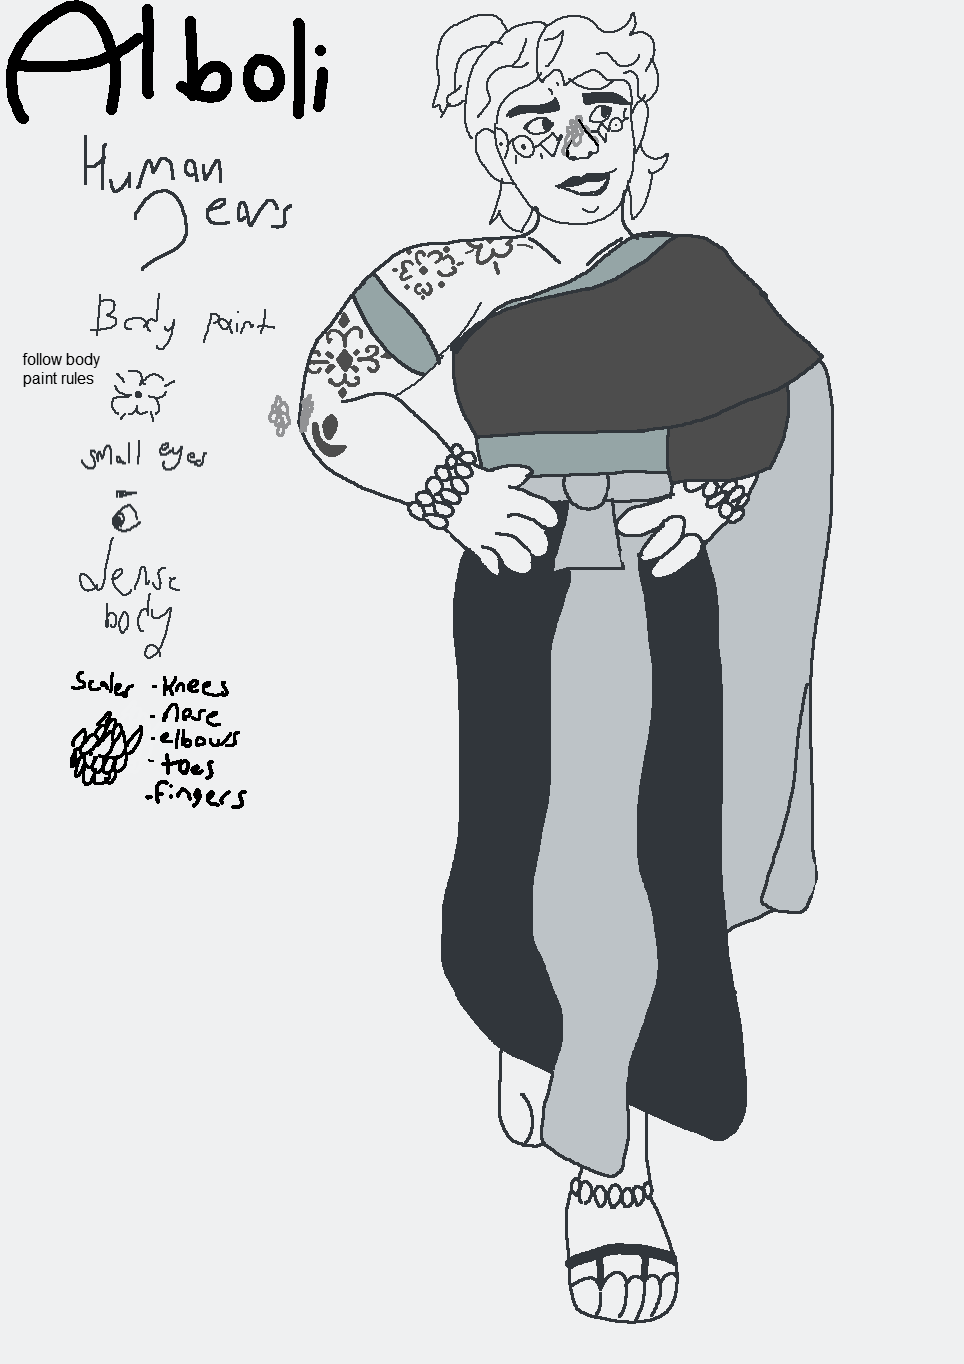 Alboli
Human
ears
Body paint
follow body
paint rules
small eyes
dense
body
Scales - Knees
- nose
- elbows
- toes
- fingers